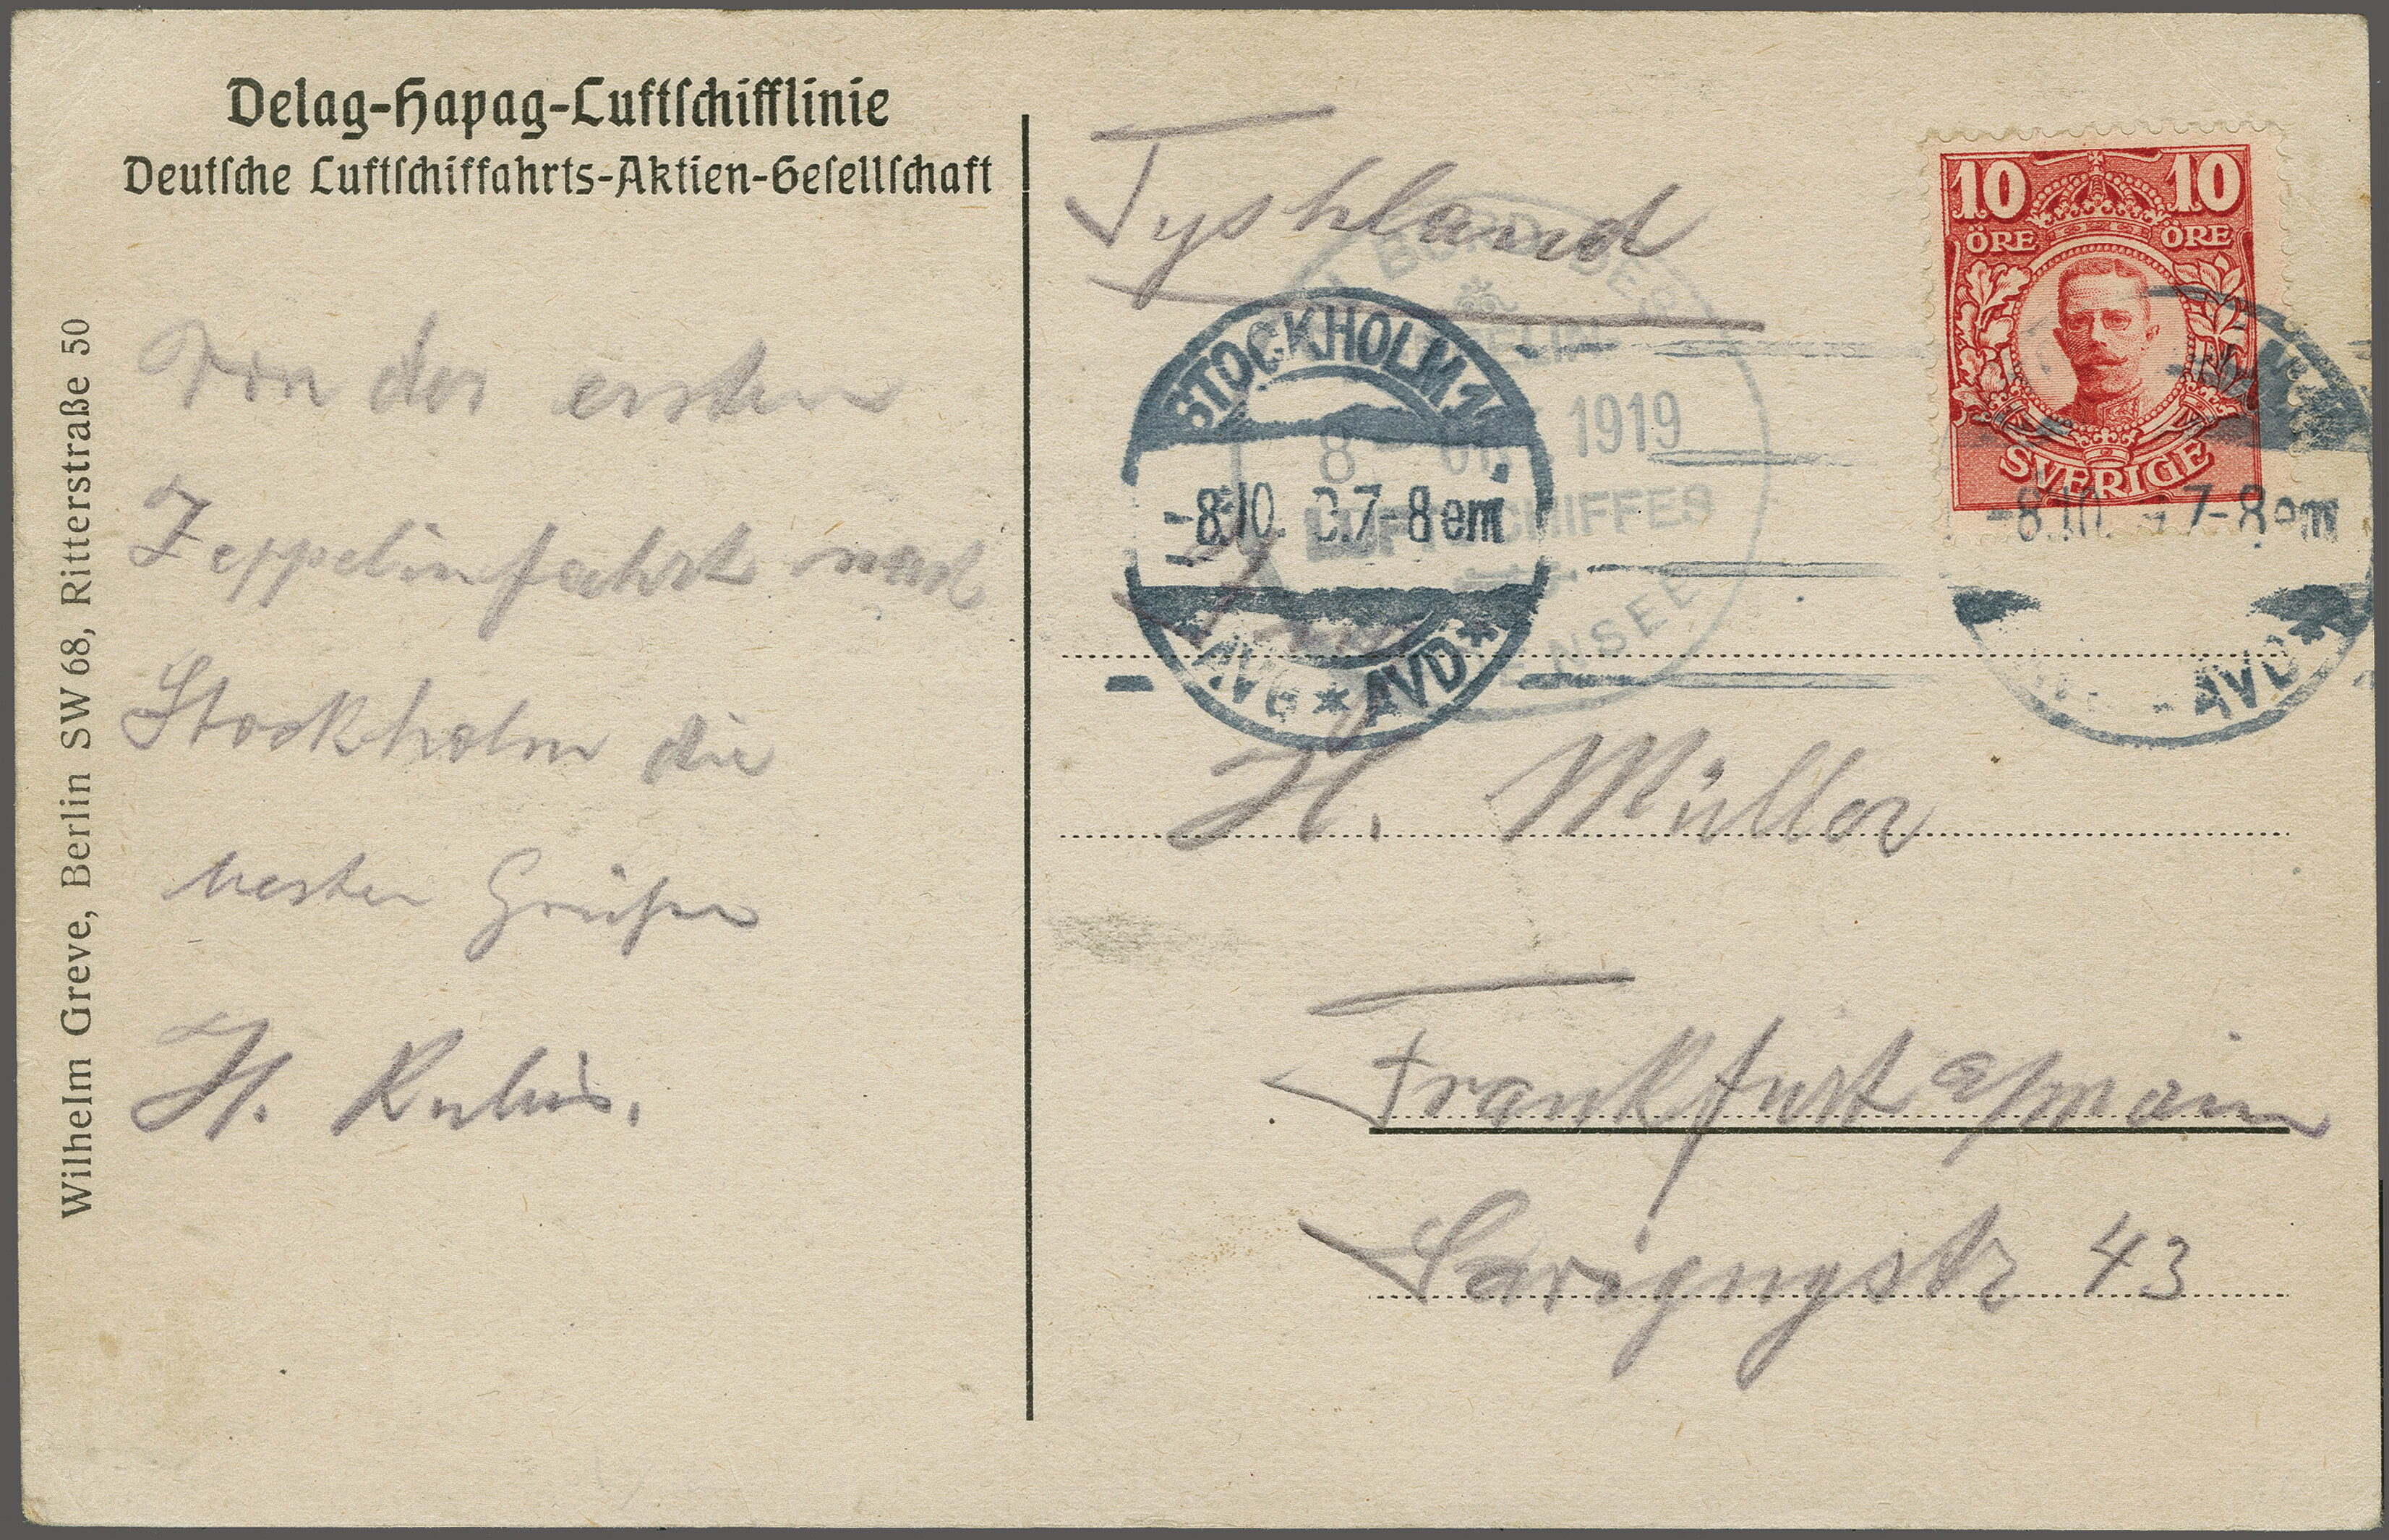 Delag-Hapag-Luftschifflinie
Deutsche Luftschiffahrts-Aktien-Gesellschaft
Wilhelm Greve, Berlin SW 68, Ritterstraße 50
Von der ersten
Zeppelinfahrt nach
Stockholm die
besten Grüße
H.
Tyskland
10 10
ÖRE ÖRE
SVERIGE
AN BORD DES
8 OKT 1919
LUFTSCHIFFES
STOCKHOLM 1
-8.10. 7-8 em
AVG * AVD *
-8.10. 7-8 em
AVD *
H. Müller
Frankfurt a/main
Savignystr 43